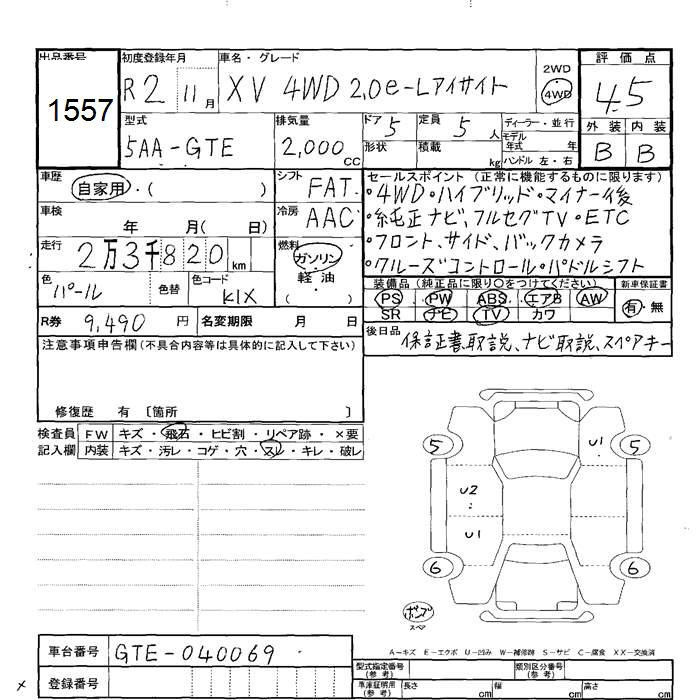 出品番号 初度登録年月 車名・グレード 2WD 評価点
1557 R2 11月 XV 4WD 2.0e-Lアイサイト 4WD 4.5
型式 排気量 ドア 定員 ディーラー・並行 外装 内装
5AA-GTE 2,000cc 5 5人 モデル年式 年 B B
形状 積載 kg ハンドル 左・右
車歴 シフト セールスポイント (正常に機能するものに限ります)
自家用・( ) FAT ・4WD・ハイブリッド・マイナー後
車検 冷房 ・純正ナビ、フルセグTV・ETC
年 月( 日) AAC ・フロント、サイド、バックカメラ
走行 2万3千820km 燃料 ガソリン・軽油・( ) ・クルーズコントロール・パドルシフト
色 色替 色コード 装備品(純正品に限り○をつけてください) 新車保証書
パール K1X PS PW ABS エアB AW 有・無
SR ナビ TV カワ
R券 9,490円 名変期限 月 日 後日品
注意事項申告欄(不具合内容等は具体的に記入して下さい) 保証書、取説、ナビ取説、スペアキー
修復歴 有 〔箇所 〕
検査員 FW キズ・飛石・ヒビ割・リペア跡・×要
記入欄 内装 キズ・汚レ・コゲ・穴・スレ・キレ・破レ
5 U1 5
U2
:
U1
6 6
ポンプ
スペア
A-キズ E-エクボ U-凹み W-補修跡 S-サビ C-腐食 XX-交換済
車台番号 GTE-040069
型式指定番号(参考) 類別区分番号(参考)
× 登録番号 車庫証明用(参考) 長さ cm 幅 cm 高さ cm